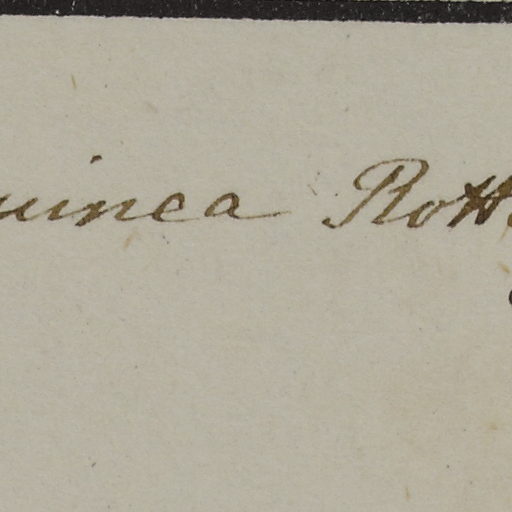 uinea Rott